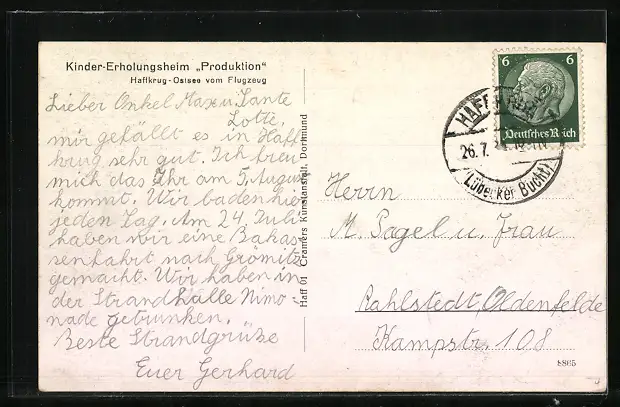 Kinder-Erholungsheim „Produktion“
Haffkrug-Ostsee vom Flugzeug
Lieber Onkel Max u. Tante
Lotte,
mir gefällt es in Haff
krug sehr gut. Ich freu
mich das Ihr am 5. August
kommt. Wir baden hier
jeden Tag. Am 24. Juli
haben wir eine
senfahrt nach Grömitz
gemacht. Wir haben in
der Strandhalle Nimo-
nade getrunken.
Beste Strandgrüße
Euer Gerhard
Haff 01 Cramers Kunstanstalt, Dortmund
6 6
Deutsches Reich
HAFFKRUG
26.7.
(Lübecker Bucht)
Herrn
M. Pagel u. Frau
Rahlstedt, Oldenfelde
Kampstr. 108
8865